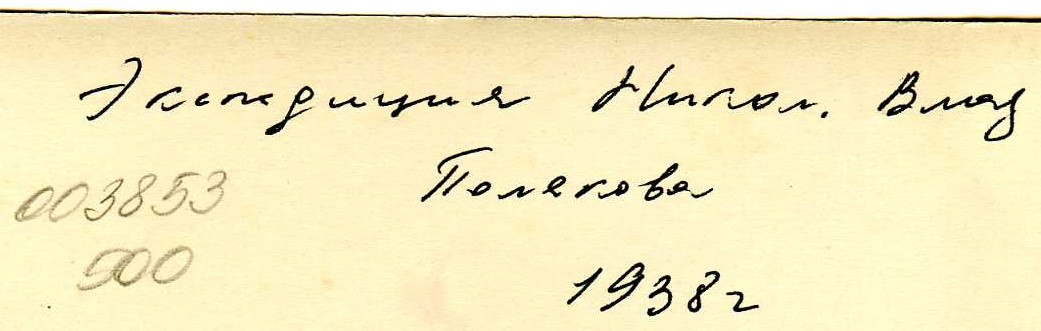 Экспедиция Никол. Влад
Полякова
003853
500
1938г